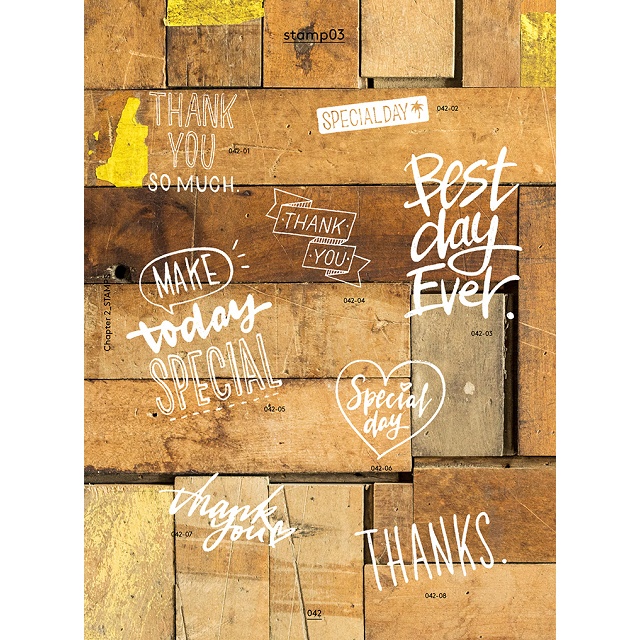 stamp03
THANK
YOU
SO MUCH.
042-01
SPECIAL DAY
042-02
Best
day
Ever.
042-03
THANK
YOU
042-04
Chapter 2_STAMPS
MAKE
today
SPECIAL
042-05
Special
day
042-06
thank
you
042-07
THANKS.
042-08
042